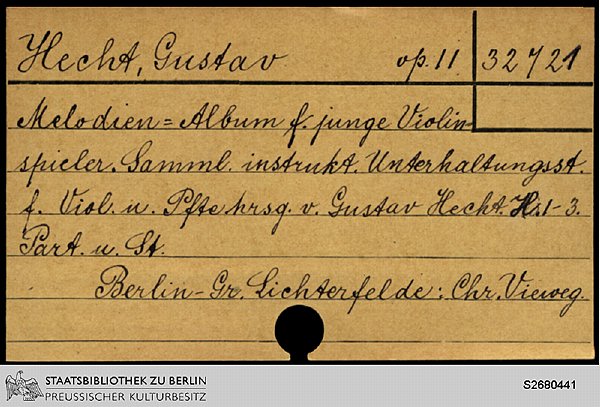 Hecht, Gustav op. 11 32721
Melodien=Album f. junge Violin-
spieler. Samml. instrukt. Unterhaltungsst.
f. Viol. u. Pfte hrsg. v. Gustav Hecht. H. 1-3.
Part. u. St.
Berlin-Gr. Lichterfelde: Chr. Vieweg.
STAATSBIBLIOTHEK ZU BERLIN
PREUSSISCHER KULTURBESITZ
S2680441